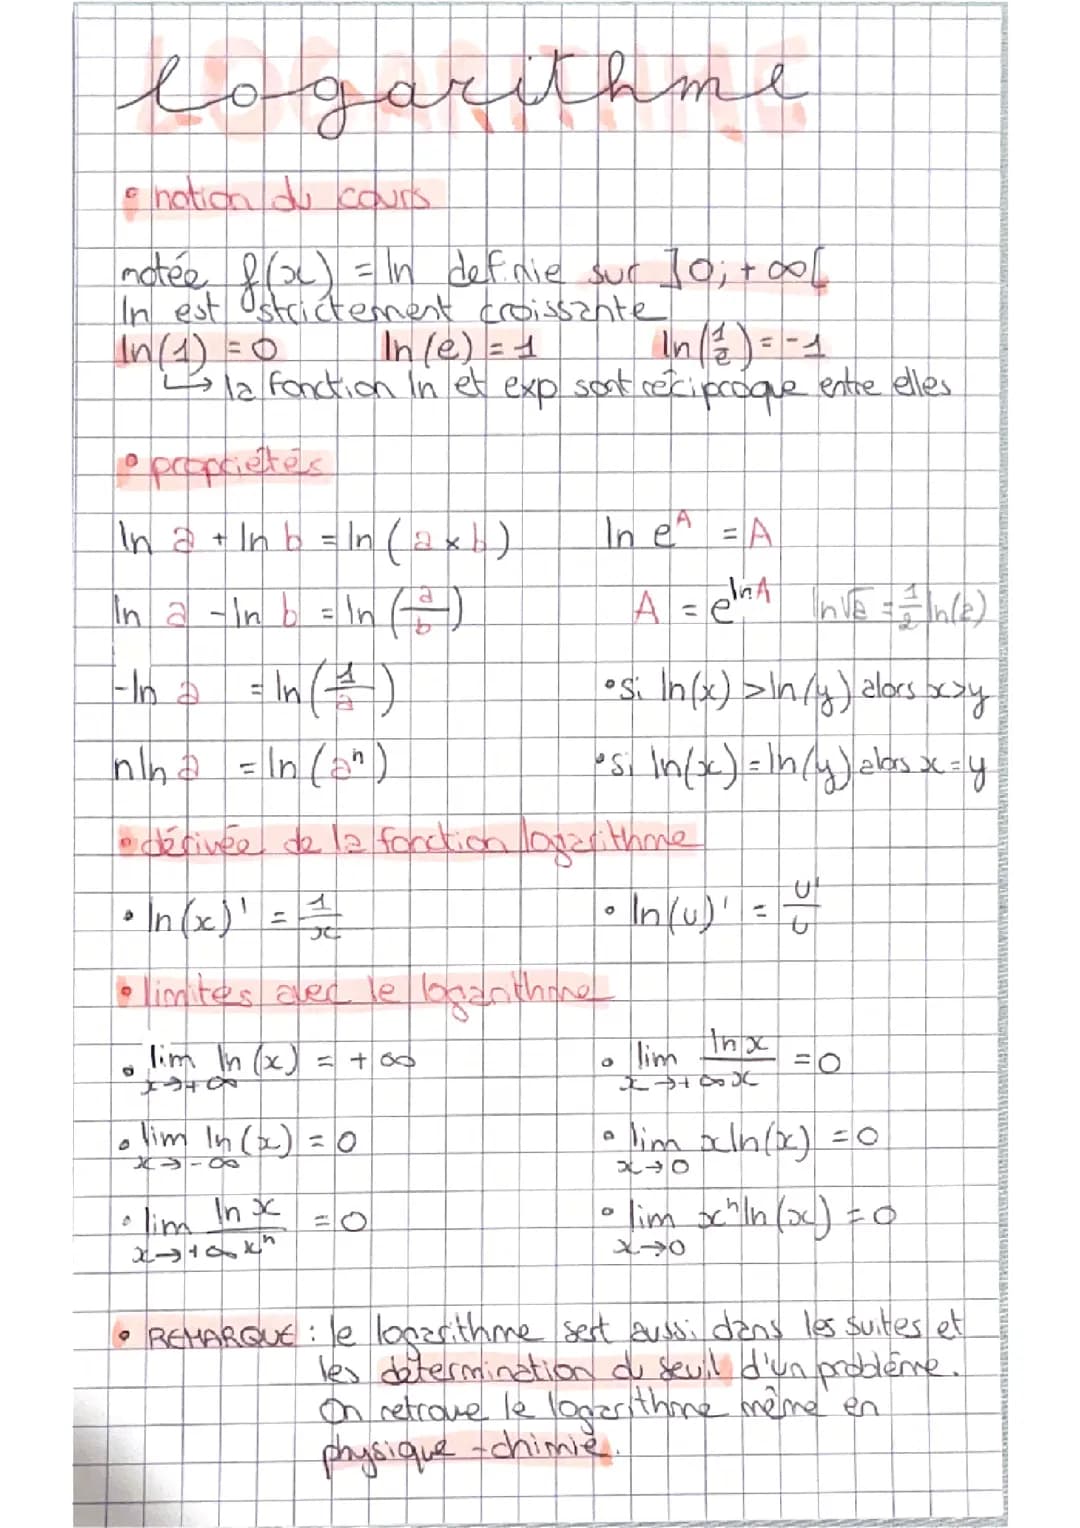 logarithme
LOGARITHME
• notion du cours
notée f(x) = ln definie sur ]0; +∞[
ln est strictement croissante
ln(1) = 0 ln(e) = 1 ln(1/e) = -1
↳ la fonction ln et exp sont réciproque entre elles
• propriétés
ln a + ln b = ln (a×b) ln e^A = A
ln a - ln b = ln (a/b) A = e^lnA ln√a = 1/2 ln(a)
-ln a = ln (1/a) • si ln(x) > ln(y) alors x>y
nln a = ln (a^n) • si ln(x) = ln(y) alors x=y
• dérivée de la fonction logarithme
• ln(x)' = 1/x • ln(u)' = u'/u
• limites avec le logarithme
• lim x→+∞ ln (x) = +∞ • lim x→+∞ ln x / x = 0
• lim x→-∞ ln (x) = 0 • lim x→0 xln(x) = 0
• lim x→+∞ ln x / x^n = 0 • lim x→0 x^n ln(x) = 0
• REMARQUE : le logarithme sert aussi dans les suites et
les détermination du seuil d'un problème.
On retrouve le logarithme même en
physique-chimie.